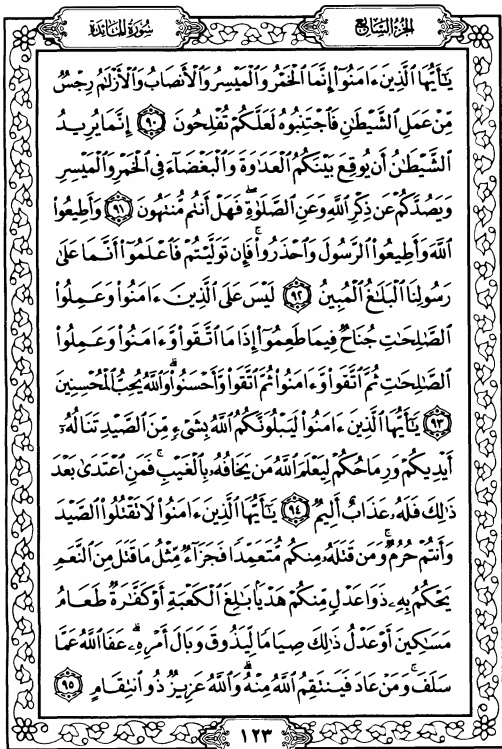 الجزء السابع
سورة المائدة
يَـٰٓأَيُّهَا ٱلَّذِينَ ءَامَنُوٓا۟ إِنَّمَا ٱلْخَمْرُ وَٱلْمَيْسِرُ وَٱلْأَنصَابُ وَٱلْأَزْلَـٰمُ رِجْسٌ
مِّنْ عَمَلِ ٱلشَّيْطَـٰنِ فَٱجْتَنِبُوهُ لَعَلَّكُمْ تُفْلِحُونَ ٩٠ إِنَّمَا يُرِيدُ
ٱلشَّيْطَـٰنُ أَن يُوقِعَ بَيْنَكُمُ ٱلْعَدَٰوَةَ وَٱلْبَغْضَآءَ فِى ٱلْخَمْرِ وَٱلْمَيْسِرِ
وَيَصُدَّكُمْ عَن ذِكْرِ ٱللَّهِ وَعَنِ ٱلصَّلَوٰةِ ۖ فَهَلْ أَنتُم مُّنتَهُونَ ٩١ وَأَطِيعُوا۟
ٱللَّهَ وَأَطِيعُوا۟ ٱلرَّسُولَ وَٱحْذَرُوا۟ ۚ فَإِن تَوَلَّيْتُمْ فَٱعْلَمُوٓا۟ أَنَّمَا عَلَىٰ
رَسُولِنَا ٱلْبَلَـٰغُ ٱلْمُبِينُ ٩٢ لَيْسَ عَلَى ٱلَّذِينَ ءَامَنُوا۟ وَعَمِلُوا۟
ٱلصَّـٰلِحَـٰتِ جُنَاحٌ فِيمَا طَعِمُوٓا۟ إِذَا مَا ٱتَّقَوا۟ وَّءَامَنُوا۟ وَعَمِلُوا۟
ٱلصَّـٰلِحَـٰتِ ثُمَّ ٱتَّقَوا۟ وَّءَامَنُوا۟ ثُمَّ ٱتَّقَوا۟ وَّأَحْسَنُوا۟ ۗ وَٱللَّهُ يُحِبُّ ٱلْمُحْسِنِينَ
٩٣ يَـٰٓأَيُّهَا ٱلَّذِينَ ءَامَنُوا۟ لَيَبْلُوَنَّكُمُ ٱللَّهُ بِشَىْءٍ مِّنَ ٱلصَّيْدِ تَنَالُهُۥٓ
أَيْدِيكُمْ وَرِمَاحُكُمْ لِيَعْلَمَ ٱللَّهُ مَن يَخَافُهُۥ بِٱلْغَيْبِ ۚ فَمَنِ ٱعْتَدَىٰ بَعْدَ
ذَٰلِكَ فَلَهُۥ عَذَابٌ أَلِيمٌ ٩٤ يَـٰٓأَيُّهَا ٱلَّذِينَ ءَامَنُوا۟ لَا تَقْتُلُوا۟ ٱلصَّيْدَ
وَأَنتُمْ حُرُمٌ ۚ وَمَن قَتَلَهُۥ مِنكُم مُّتَعَمِّدًا فَجَزَآءٌ مِّثْلُ مَا قَتَلَ مِنَ ٱلنَّعَمِ
يَحْكُمُ بِهِۦ ذَوَا عَدْلٍ مِّنكُمْ هَدْيًۢا بَـٰلِغَ ٱلْكَعْبَةِ أَوْ كَفَّـٰرَةٌ طَعَامُ
مَسَـٰكِينَ أَوْ عَدْلُ ذَٰلِكَ صِيَامًا لِّيَذُوقَ وَبَالَ أَمْرِهِۦ ۗ عَفَا ٱللَّهُ عَمَّا
سَلَفَ ۚ وَمَنْ عَادَ فَيَنتَقِمُ ٱللَّهُ مِنْهُ ۗ وَٱللَّهُ عَزِيزٌ ذُو ٱنتِقَامٍ ٩٥
١٢٣